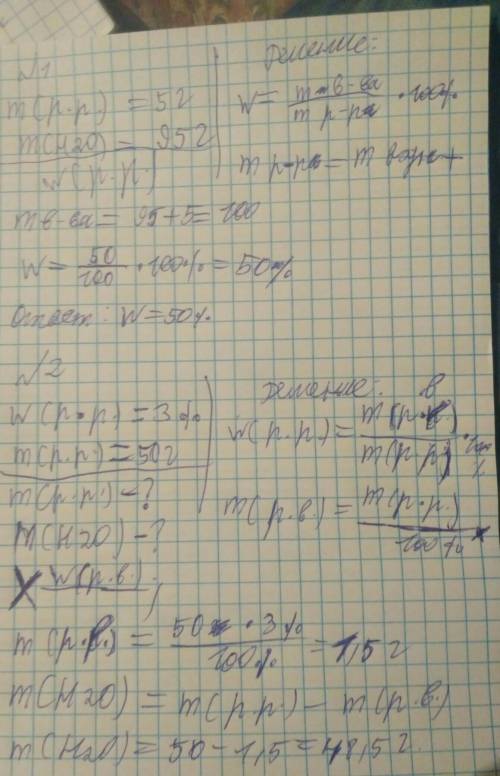 √1
Решение:
m(р.р.) = 5г
m(H2O) = 95г
w(р.р.)
w = m в-ва / m р-ра · 100%
m р-ра = m воды +
m в-ва = 95+5=100
w = 50/100 · 100% = 50%
Ответ: w=50%
√2
Решение:
w(р.р.) = 3%
m(р.р.) = 50г
m(р.р.) - ?
m(H2O) - ?
X w(р.в.)
w(р.р.) = m(р.в) / m(р.р.) · 100%
m(р.в.) = m(р.р.) / 100% ×
m(р.в.) = 50 · 3% / 100% = 1,5 г
m(H2O) = m(р.р.) - m(р.в.)
m(H2O) = 50 - 1,5 = 48,5г.